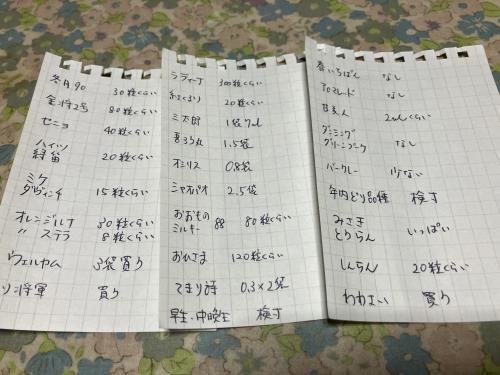 冬月90 30粒くらい
金将2号 80粒くらい
ゼニョ 40粒くらい
ハイツ
緑笛 20粒くらい
ミケ
ダヴィンチ 15粒くらい
オレンジルナ 30粒くらい
〃 ステラ 8粒くらい
ウェルカム 3袋 買う
将軍 買う
ラティーナ 300粒くらい
紅くるり 20粒くらい
三太郎 1袋7ml
夏つみ丸 1.5袋
オシリス 0.8袋
シャオパオ 2.5袋
おおもの
ミルキー 88 80粒くらい
おひさま 120粒くらい
てまり姫 0.3×2袋
早生・中晩生 検討
春いちばん なし
プロマレード なし
美人 2mlくらい
グリーン なし
バークレー 少ない
年内どり品種 検討
みさき
とりらん いっぱい
しんらん 20粒くらい
わわさい 買う